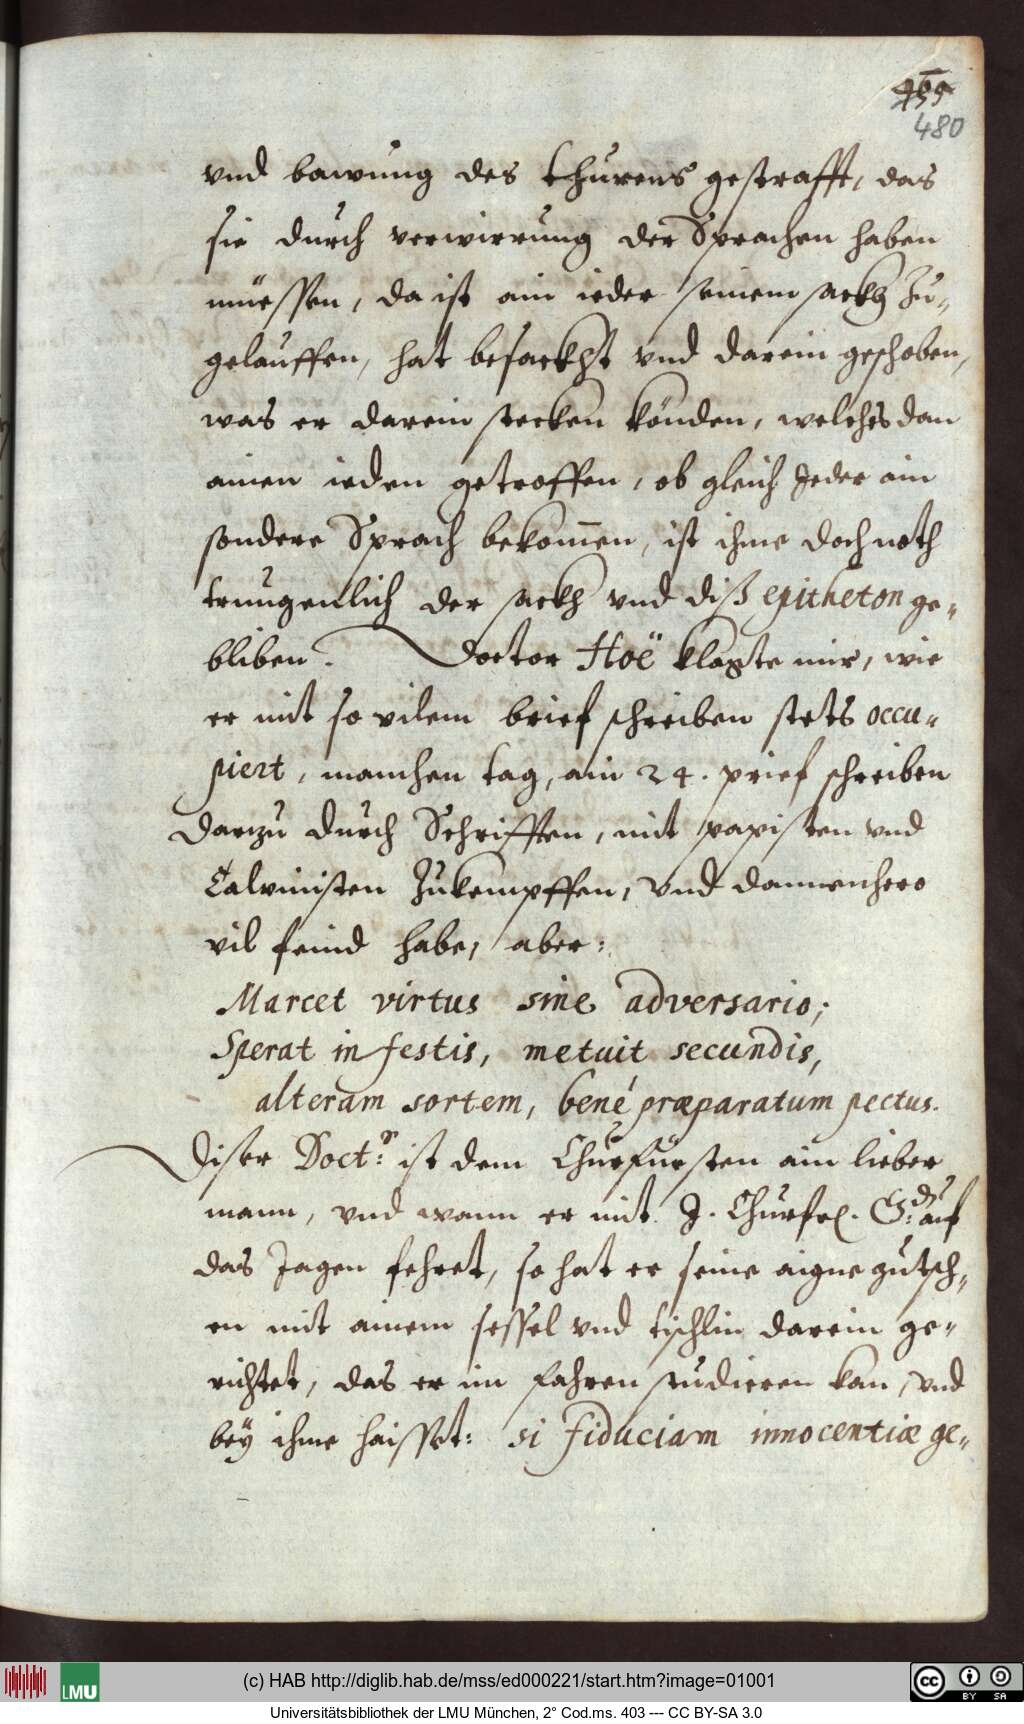 480
vnd bawung des thurens gestrafft, das
sie durch verwirrung der Sprachen haben
müessen, da ist ain ieder seinem sackh Zu-
gelauffen, hat besackht vnd darein geschoben,
was er darein stecken könden, welches dan
ainen ieden getroffen, ob gleich Jeder ain
sondere Sprach bekom̄en, ist ihme doch noth
trungenlich der sackh vnd diß epitheton ge-
bliben. Doctor Hoë klagte mir, wie
er mit so vilem brief schreiben stets occu-
piert, manchen tag, ain 24. prief schreiben
darzu durch Schrifften, mit papisten vnd
Calvinisten Zukempffen, vnd dannenhero
vil feind habe, aber:
Marcet virtus sine adversario;
Sperat infestis, metuit secundis,
alteram sortem, bené præparatum pectus.
Diser Doct:r ist dem Churfürsten ain lieber
mann, vnd wann er mit J. Churfel. G:d auf
das Jagen fehret, so hat er seine aigne gutsch-
en mit ainem sessel vnd tischlin darein ge-
richtet, das er im fahren studieren kan, vnd
bey ihme haisset: si fiduciam innocentiæ ge-
(c) HAB http://diglib.hab.de/mss/ed000221/start.htm?image=01001
LMU
cc BY SA
Universitätsbibliothek der LMU München, 2° Cod.ms. 403 --- CC BY-SA 3.0